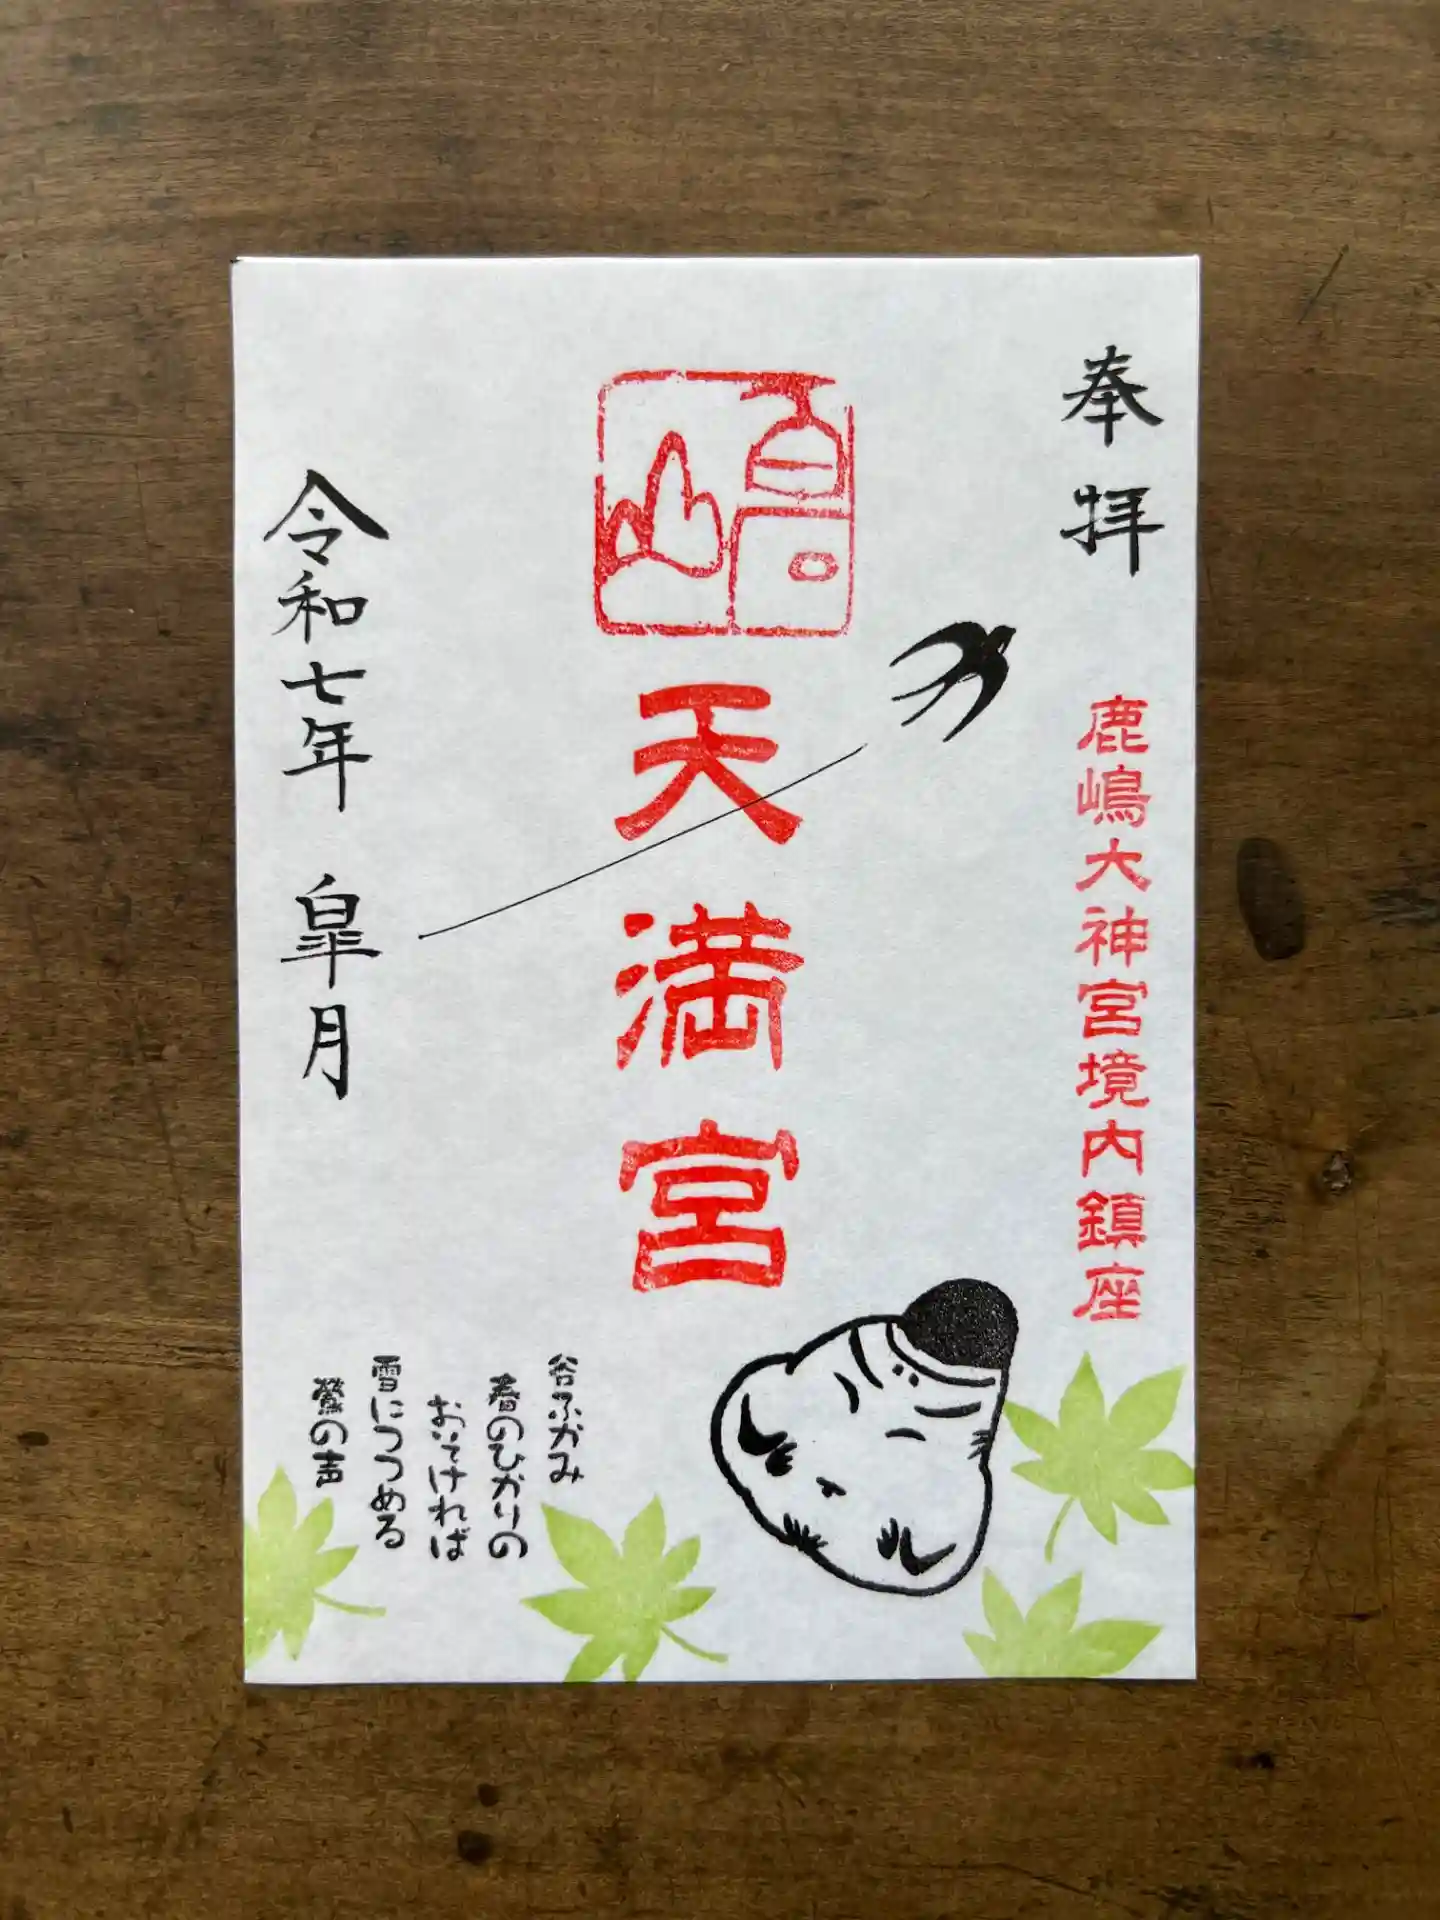 奉拝
鹿嶋大神宮境内鎮座
嶋
天満宮
谷ふかみ
春のひかりの
おいそければ
雪につつめる
鶯の声
令和七年 皐月